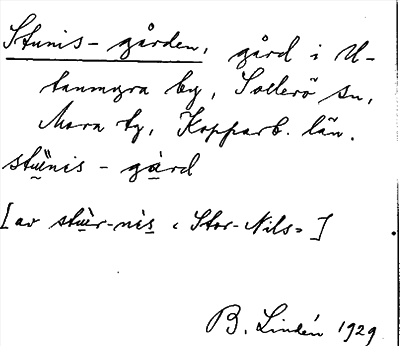 Stunis-gården, gård i U-
tanmyra by, Sollerö sn,
Mora tg, Kopparb. län.
stu̬̇nis - gàrd
[av stu̬̇̀r-nis < Stor-Nils- ]
B. Lindén 1929